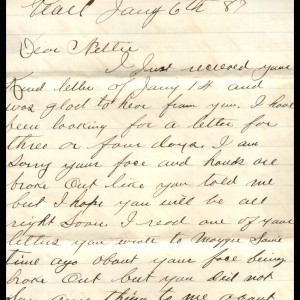 Jany 6th 8
Dear Nettie
I Just recieved your
Kind letter of Jany 14 and
was glad to hear from you. I have
been looking for a letter for
three or four days. I am
sorry your face and hands are
broke out like you told me
but I hope you will be all
right soon. I read one of your
letters you wrote to Maggie some
time ago about your face being
broke out but you did not
say any thing to me about